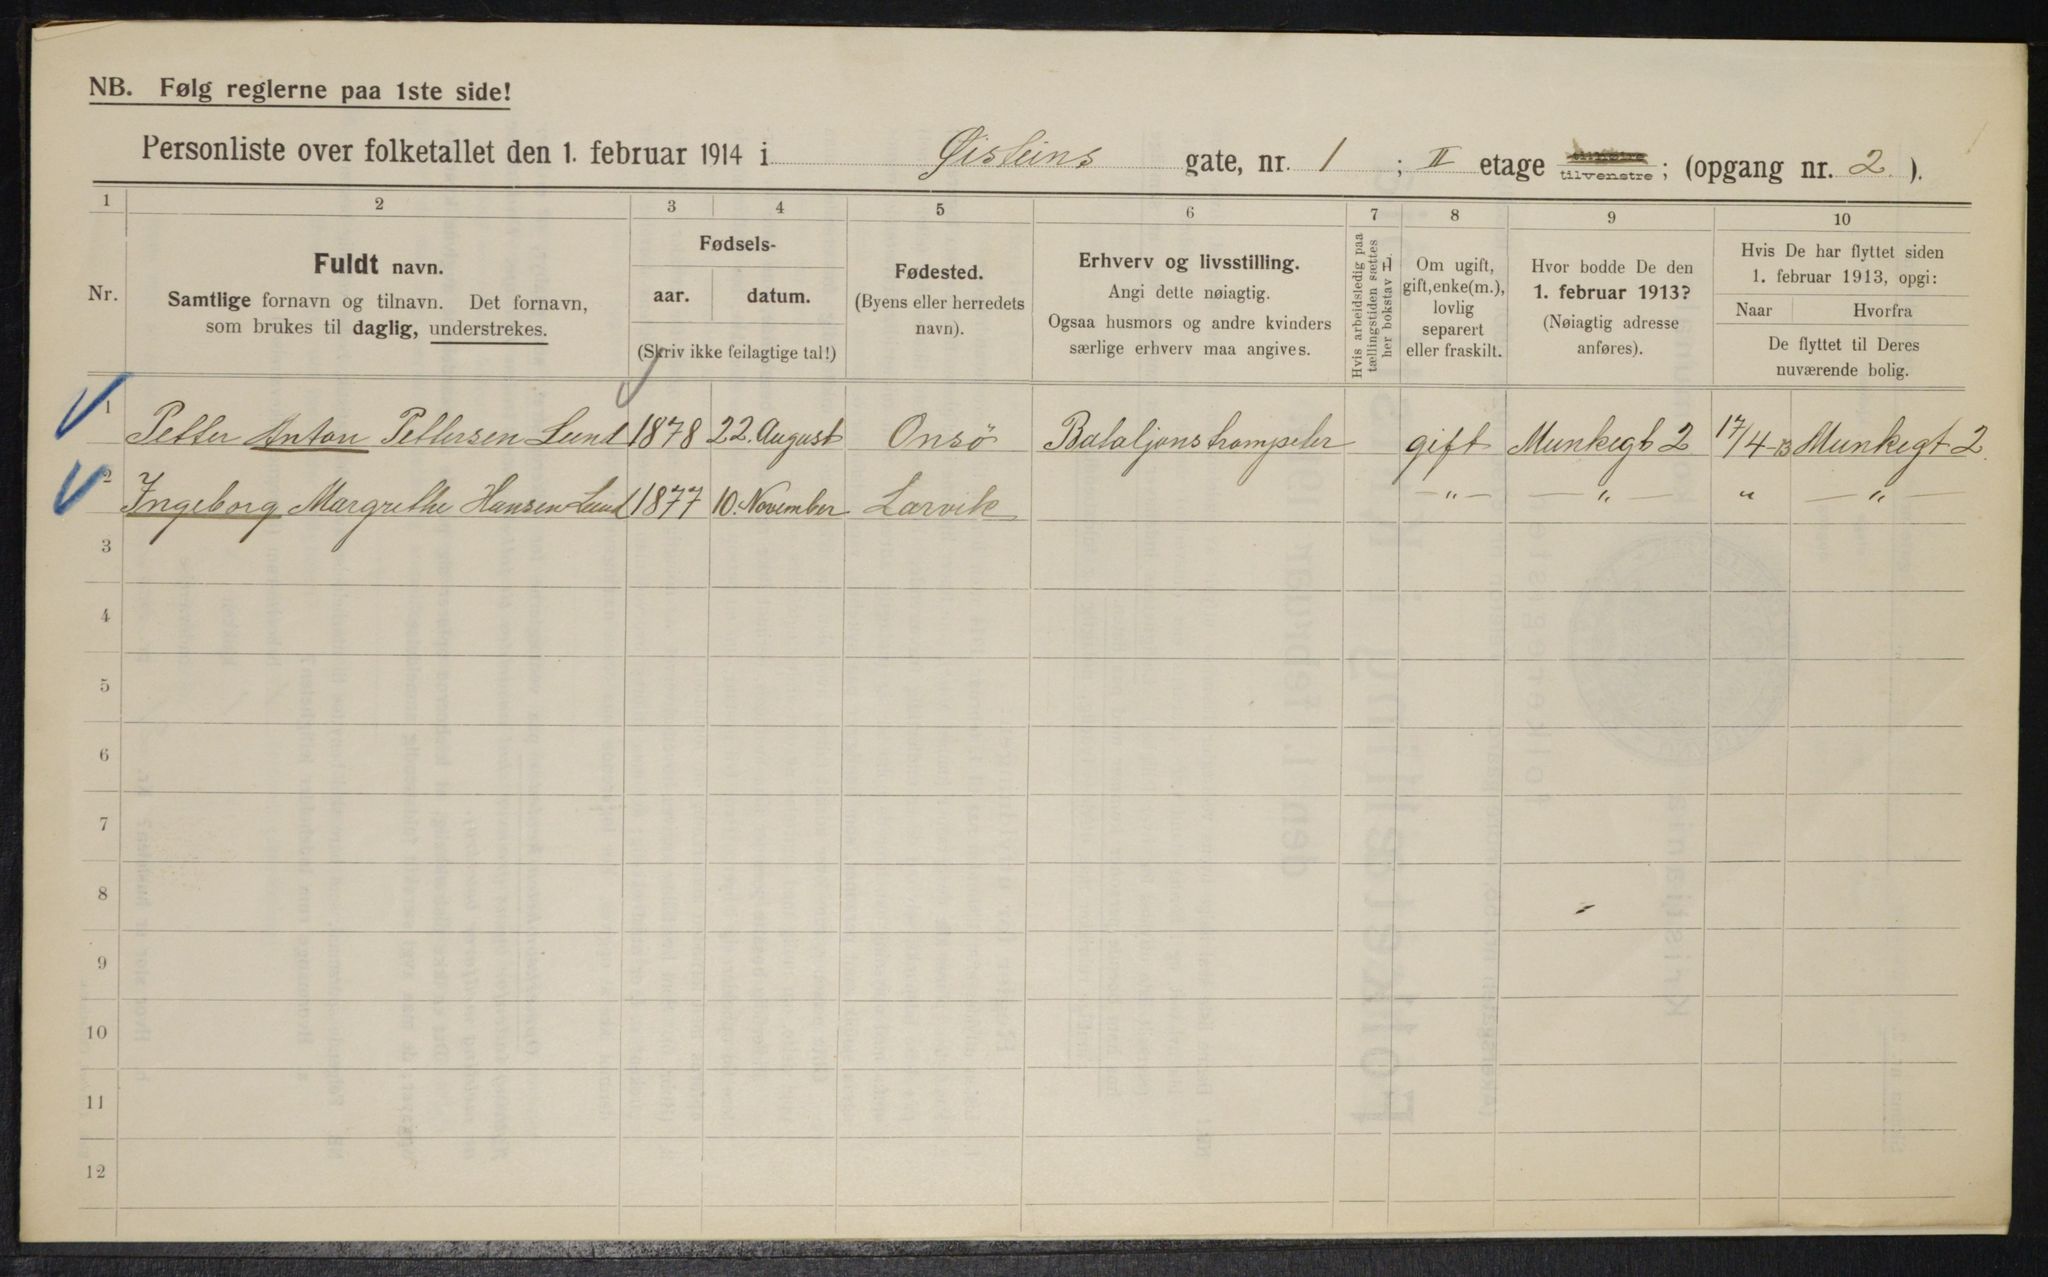 NB. Følg reglerne paa 1ste side!
Personliste over folketallet den 1. februar 1914 i Øisteins gate, nr. 1 ; II etage tilvenstre; (opgang nr. 2 ).
1 2 3 4 5 6 7 8 9 10
Nr.
Fuldt navn.
Samtlige fornavn og tilnavn. Det fornavn,
som brukes til daglig, understrekes.
Fødsels-
aar. datum.
(Skriv ikke feilagtige tal!)
Fødested.
(Byens eller herredets
navn).
Erhverv og livsstilling.
Angi dette nøiagtig.
Ogsaa husmors og andre kvinders
særlige erhverv maa angives.
Hvis arbeidsledig paa
tællingstiden sættes
her bokstav L
Om ugift,
gift, enke(m.),
lovlig
separert
eller fraskilt.
Hvor bodde De den
1. februar 1913?
(Nøiagtig adresse
anføres).
Hvis De har flyttet siden
1. februar 1913, opgi:
Naar Hvorfra
De flyttet til Deres
nuværende bolig.
1 Petter Anton Pettersen Lund 1878 22. August Onsö Bataljonstrompeter gift Munkegt 2 17/4-13 Munkegt 2.
2 Ingeborg Margrethe Hansen Lund 1877 10. November Larvik — " — — " — " — " —
3
4
5
6
7
8
9
10
11
12